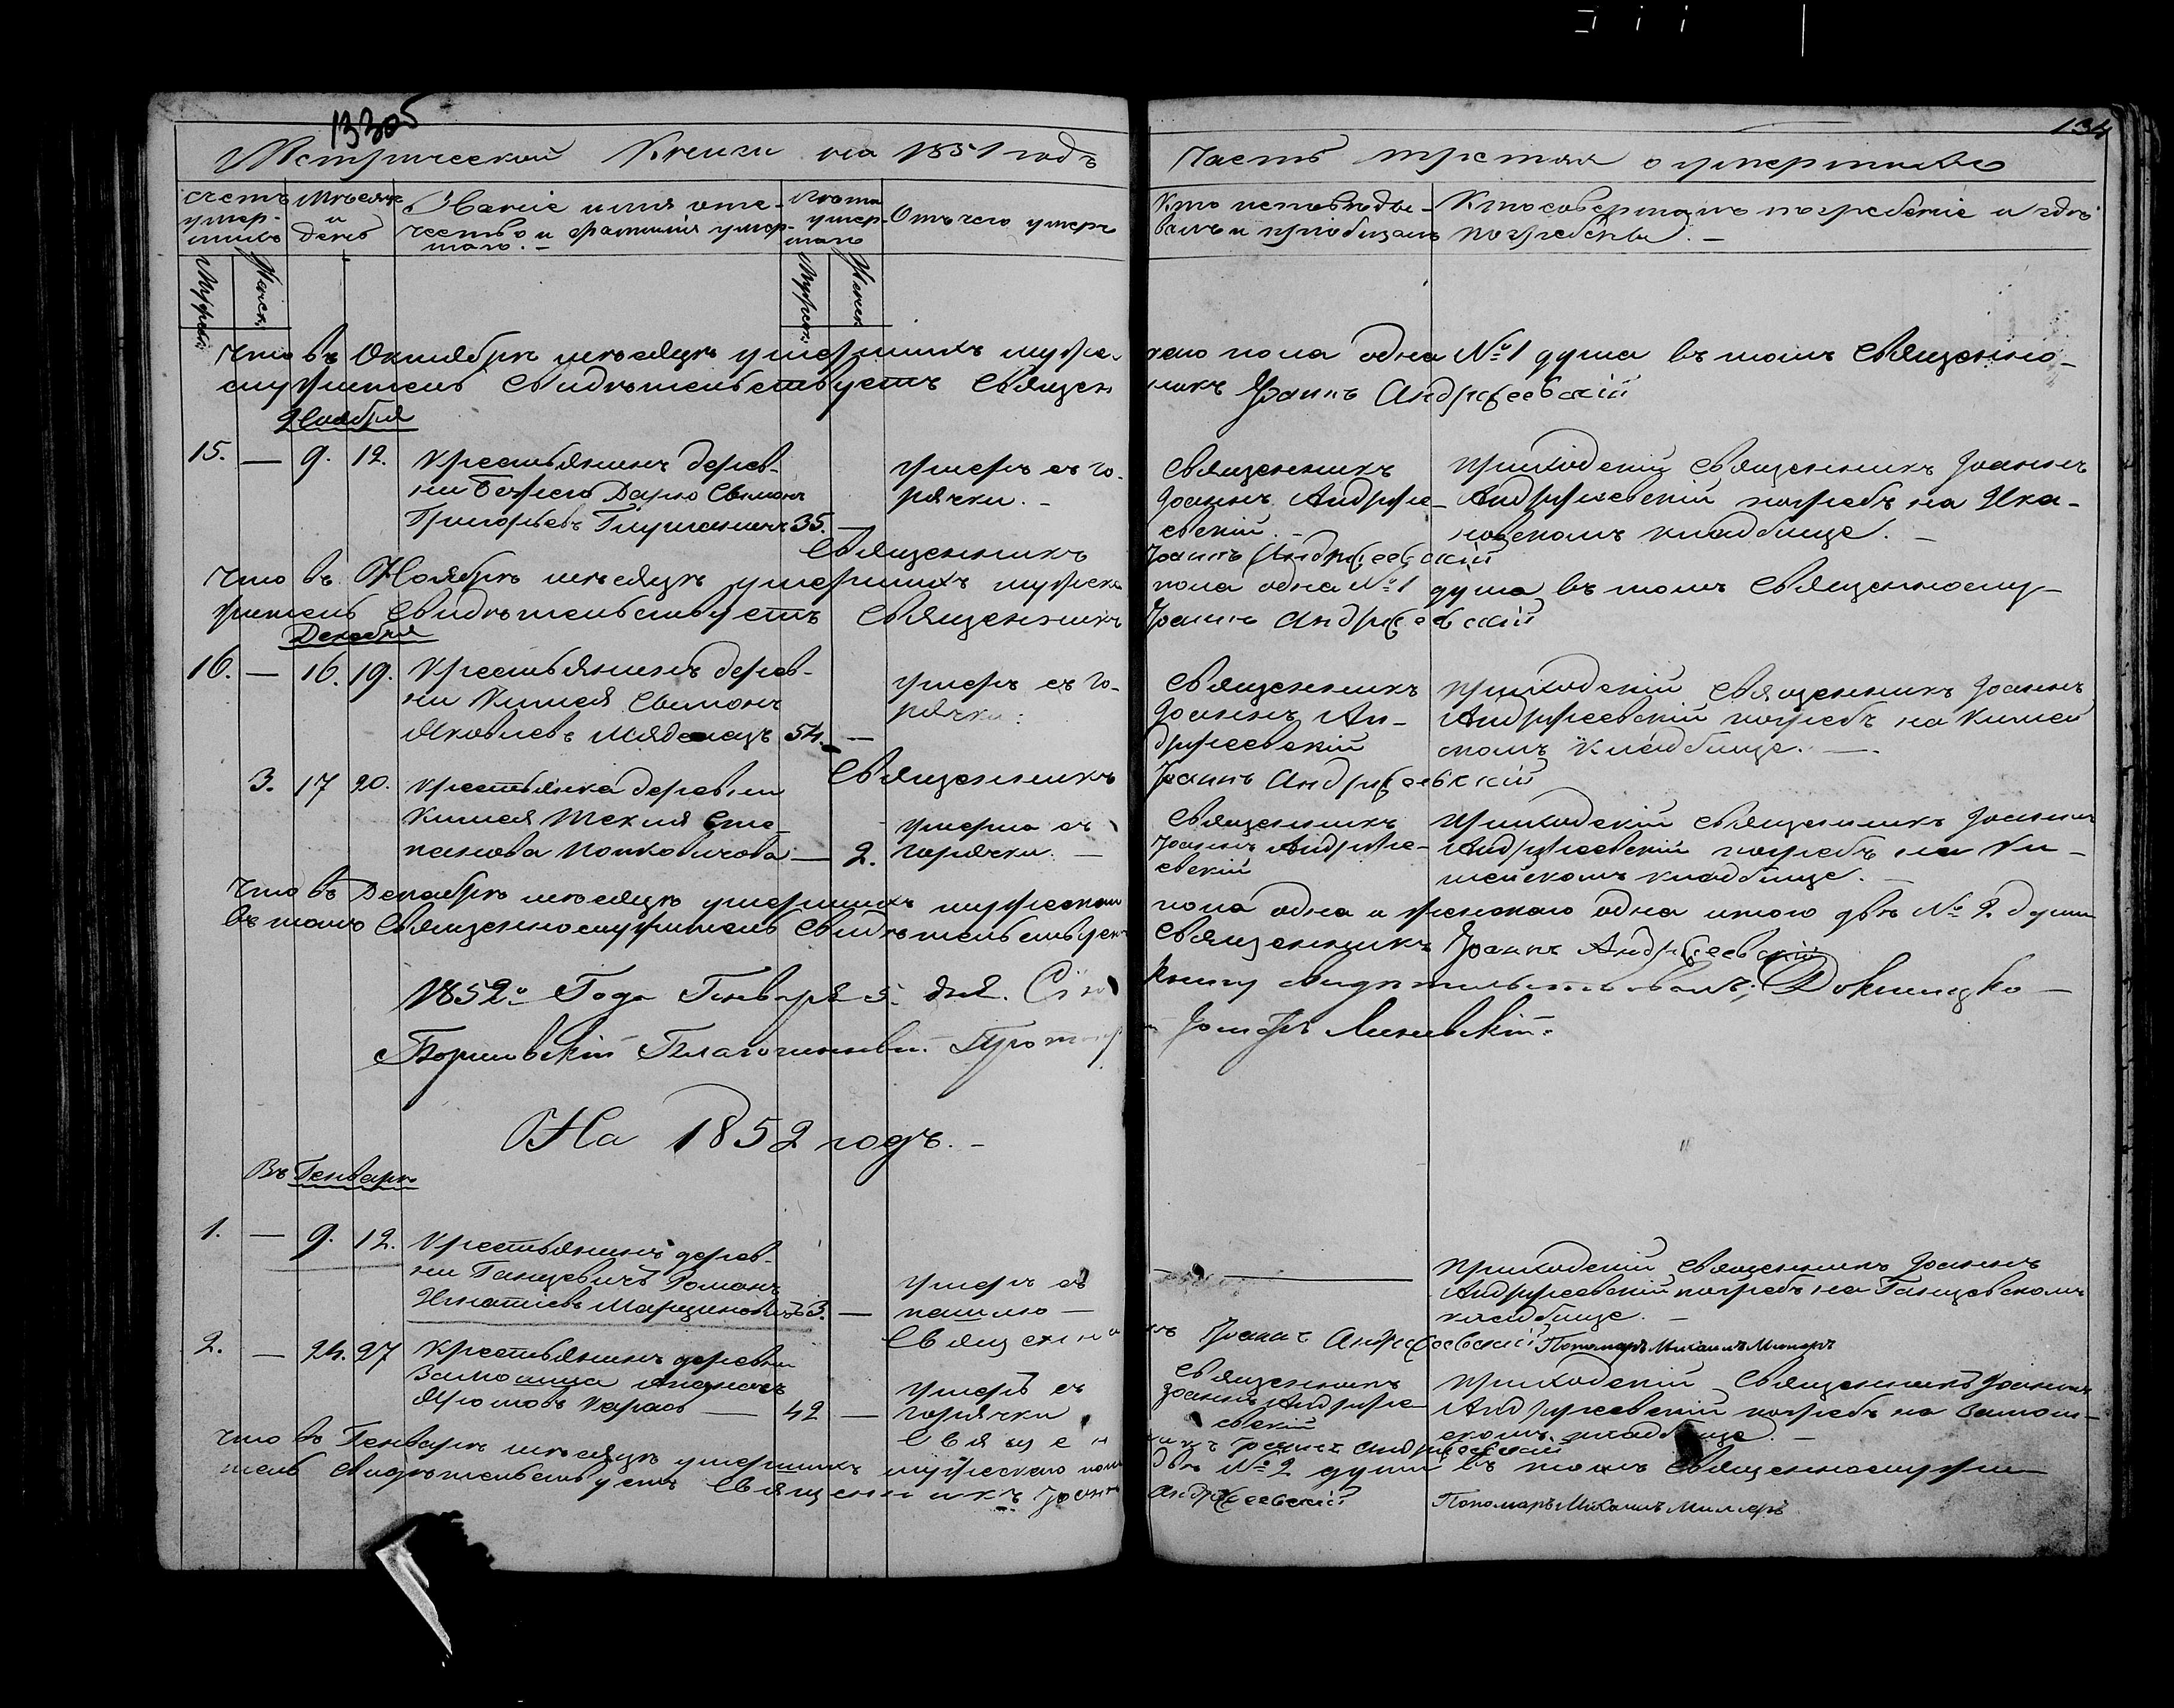 133об
134
Метрической Книги на 1851 годъ
Часть третья о умершихъ
Счетъ умер-шихъ
Мѣсяцъ и день
Званіе имя оте-чество и фамилія умер-шаго. —
Лѣта умер-шаго
Отъ чего умеръ
Кто исповѣды-валъ и пріобщалъ
Кто совершалъ погребеніе и гдѣ погребены. —
Мужеск.
Женск.
Мужеск.
Женск.
Что въ Октябрѣ мѣсяцѣ умершихъ муже-скаго пола одна №1 душа въ томъ священно-
служитель свидѣтельствуетъ Священникъ Іоаннъ Андржеевскій
Ноября
15. — 9. 12. Крестьянинъ дерев-
ни Семонъ
Григорьевъ 35. —
умеръ съ го-
рячки. —
Священникъ
Іоаннъ Андрже-
евскій. —
Приходскій Священникъ Іоаннъ
Андржеевскій погребъ на
кладбище. —
Священникъ Іоаннъ Андржеевскій
Что въ Ноябрѣ мѣсяцѣ умершихъ мужеска пола одна №1 душа въ томъ Священнослу-
житель Свидѣтельствуетъ Священникъ Іоаннъ Андржеевскій
Декабря
16. — 16. 19. Крестьянинъ дерев-
ни Кимея Симонъ
Яковлевъ 54. —
умеръ съ го-
рячки.
Священникъ
Іоаннъ Ан-
држеевскій
Приходскій Священникъ Іоаннъ
Андржеевскій погребъ на Кимей
скомъ кладбище. —
Священникъ Іоаннъ Андржеевскій
3. 17 20. Крестьянка деревни
Кимея Текля Сте-
панова Попковичова — 2.
умерла съ
горячки. —
Священникъ
Іоаннъ Андрже-
евскій
Приходскій Священникъ Іоаннъ
Андржеевскій погребъ на Ки-
мейскомъ кладбище. —
Что въ Декабрѣ мѣсяцѣ умершихъ мужескаго пола одна и женскаго одна итого двѣ № 2. души
въ томъ Священнослужитель Свидѣтельствуетъ Священникъ Іоаннъ Андржеевскій
1852о Года Генваря 5. дня. Сію Книгу свидѣтельствовалъ, Докшицко —
Борисовскій Благочинный Протоіерей
На 1852 годъ. —
Въ Генварѣ
1. — 9. 12. Крестьянинъ дерев-
ни Ганцевичъ Романъ
Игнатіевъ Марциновичъ 63. —
умеръ съ
кашлю —
Приходскій Священникъ Іоаннъ
Андржеевскій погребъ на Ганцевскомъ
кладбище. —
Священникъ Іоаннъ Андржеевскій Пономаръ Михаилъ
2. — 24. 27 Крестьянинъ деревни
Замошша
Карась — 42 —
умеръ съ
горячки
Священникъ
Іоаннъ Андрже-
евскій
Приходскій Священникъ Іоаннъ
Андржеевскій погребъ на Замош-
скомъ кладбище. —
Священникъ Іоаннъ Андржеевскій
Что въ Генварѣ мѣсяцѣ умершихъ мужескаго пола двѣ №2 души въ томъ Священнослужи-
тель Свидѣтельствуетъ Священникъ Іоаннъ Андржеевскій Пономаръ Михаилъ